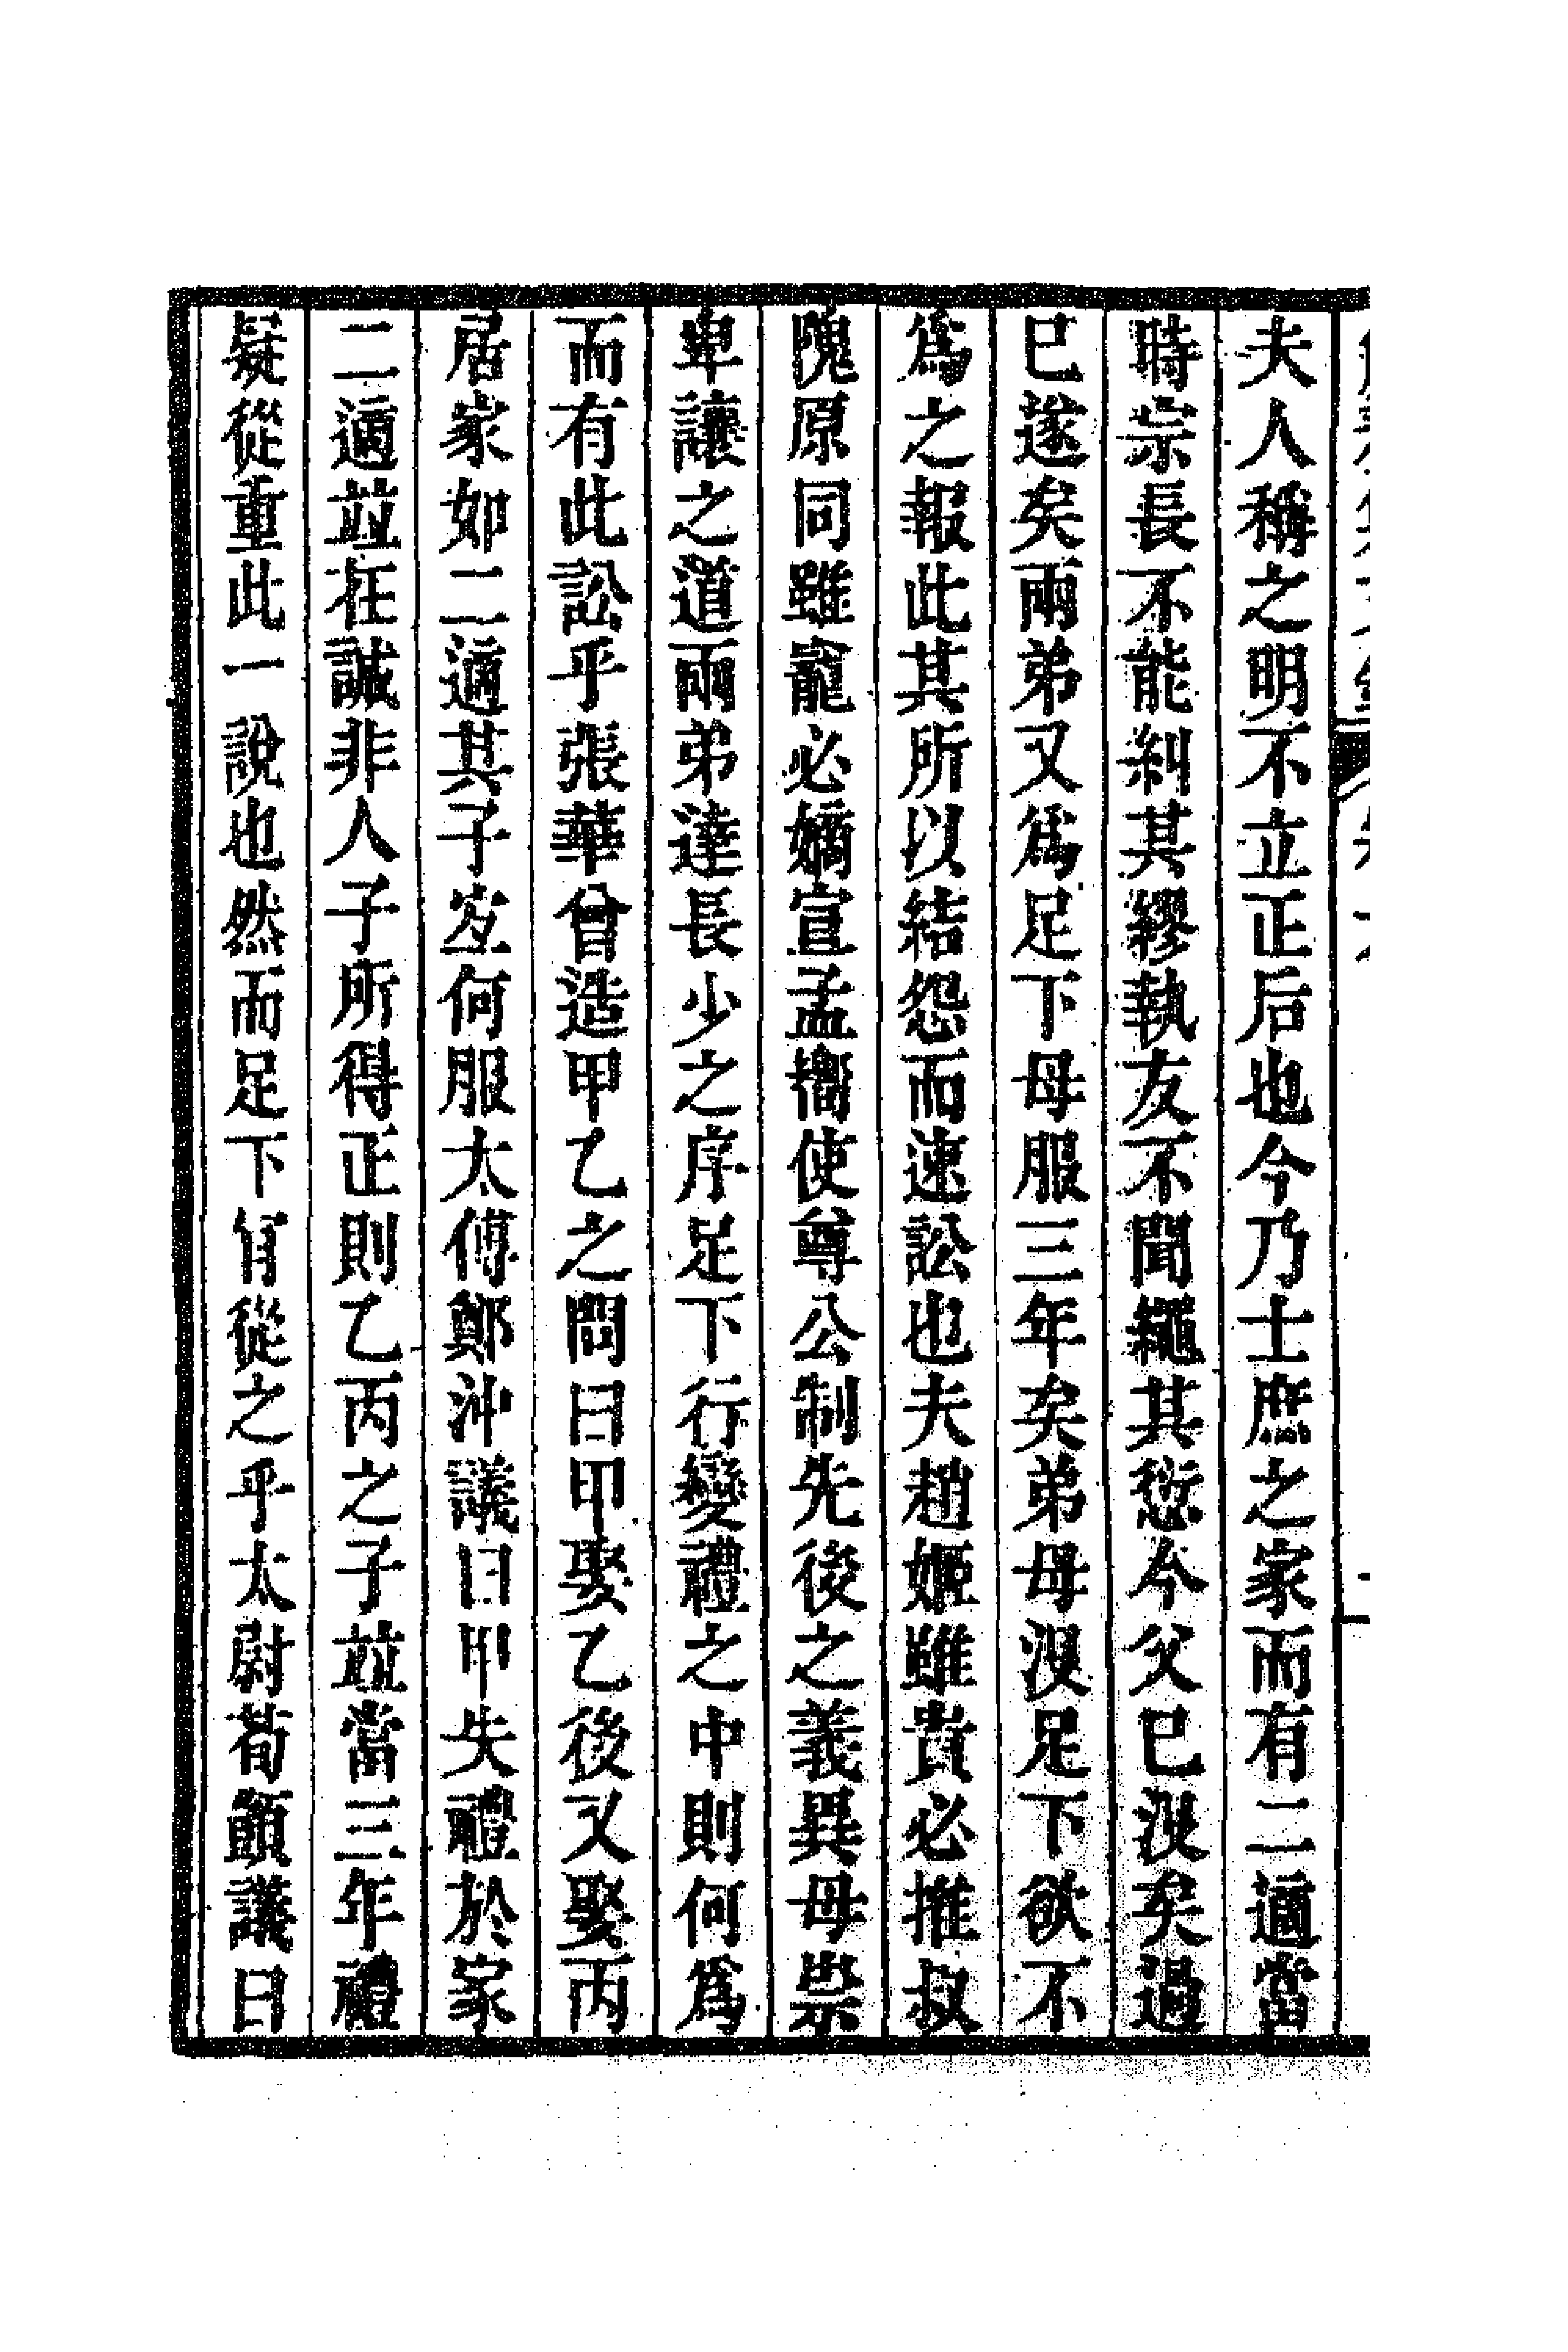 夫人稱之明不立正后也今乃士庶之家而有二適當
時宗長不能糾其繆執友不聞繩其愆今父已沒矣過
已遂矣兩弟又爲足下母服三年矣弟母沒足下欲不
爲之報此其所以結怨而速訟也夫趙姬雖貴必推叔
隗原同雖寵必嫡宣孟嚮使尊公制先後之義異母崇
卑讓之道兩弟達長少之序足下行變禮之中則何爲
而有此訟乎張華曾造甲乙之問曰甲娶乙後又娶丙
居家如二適其子宜何服太傅鄭沖議曰甲失禮於家
二適並在誠非人子所得正則乙丙之子並當三年禮
疑從重此一說也然而足下肯從之乎太尉荀顗議曰